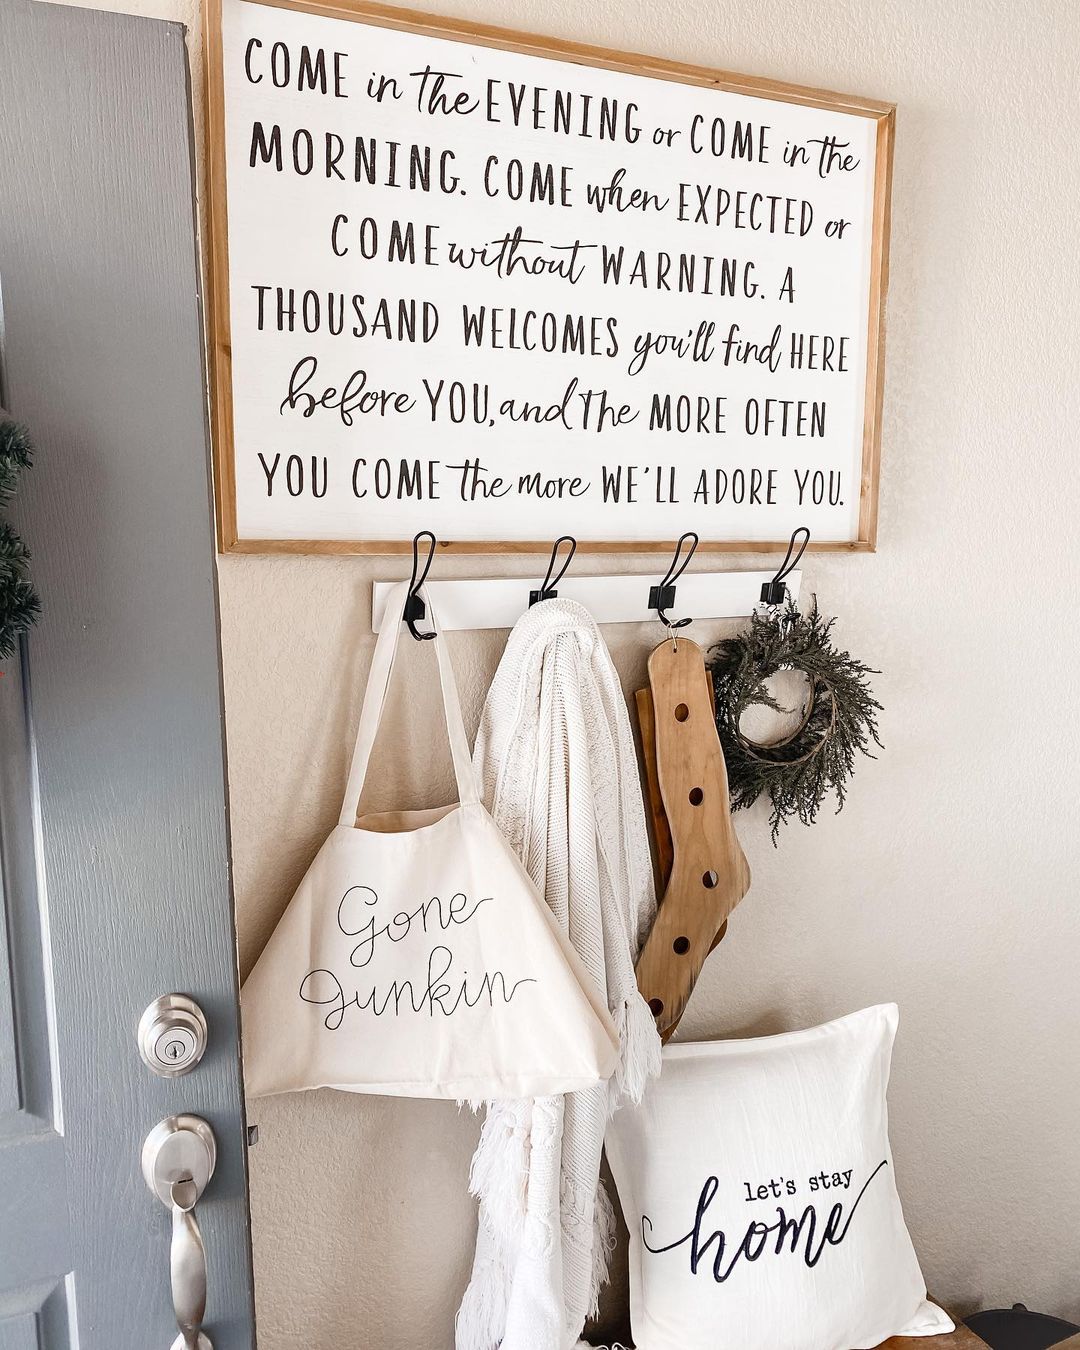 COME in the EVENING or COME in the
MORNING. COME when EXPECTED or
COME without WARNING. A
THOUSAND WELCOMES you'll find HERE
before YOU, and The MORE OFTEN
YOU COME the more WE'LL ADORE YOU.
Gone
Junkin
let's stay
home